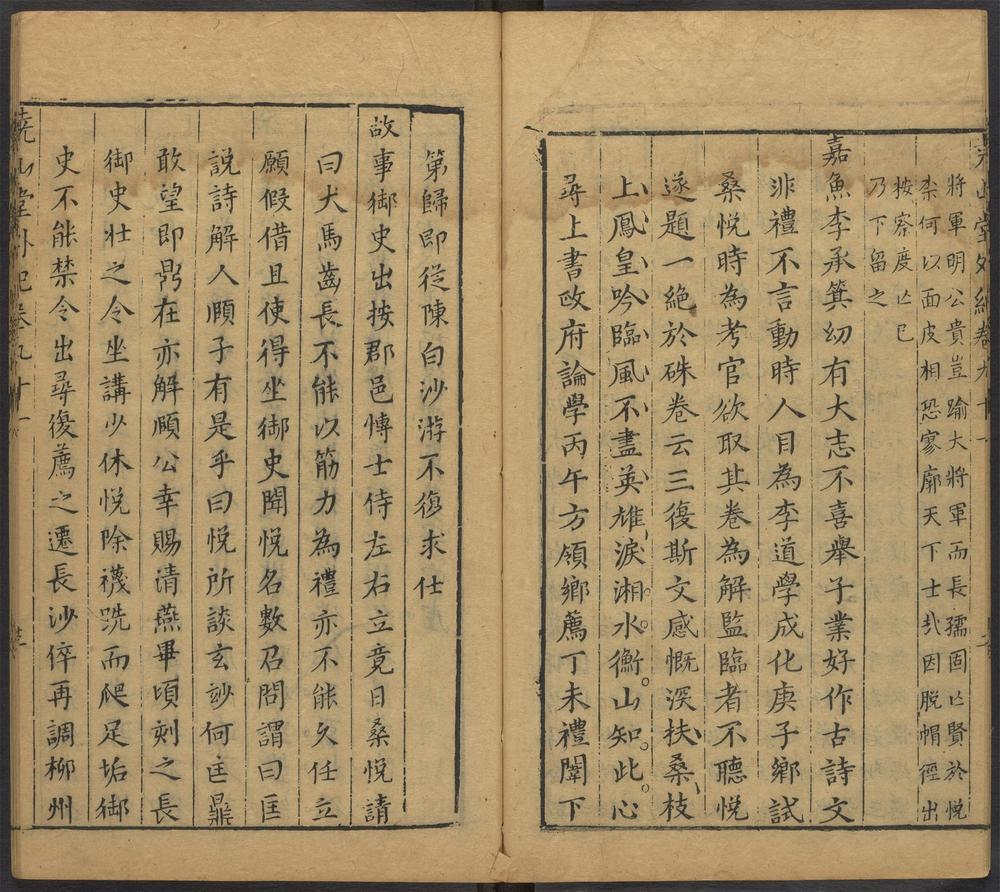 堯山堂外紀卷九十一
將軍明公貴豈踰大將軍而長孺固亡賢於悅
柰何以面皮相恐寥廓天下士哉因脫帽徑出
按察度亡已
乃下留之
嘉魚李承箕幼有大志不喜舉子業好作古詩文
非禮不言動時人目為李道學成化庚子鄉試
桑悅時為考官欲取其卷為解監臨者不聽悅
遂題一絕於硃卷云三復斯文感慨深扶桑枝
上鳳皇吟臨風不盡英雄淚湘水衡山知此心
尋上書政府論學丙午方領鄉薦丁未禮闈下
第歸即從陳白沙游不復求仕
故事御史出按郡邑博士侍左右立竟日桑悅請
曰犬馬齒長不能以筋力為禮亦不能久任立
願假借且使得坐御史聞悅名數召問謂曰匡
說詩解人頤子有是乎曰悅所談玄妙何匡鼎
敢望即鼎在亦解頤公幸賜清燕畢頃刻之長
御史壯之令坐講少休悅除襪跣而爬足垢御
史不能禁令出尋復薦之遷長沙倅再調柳州
堯山堂外紀卷九十一